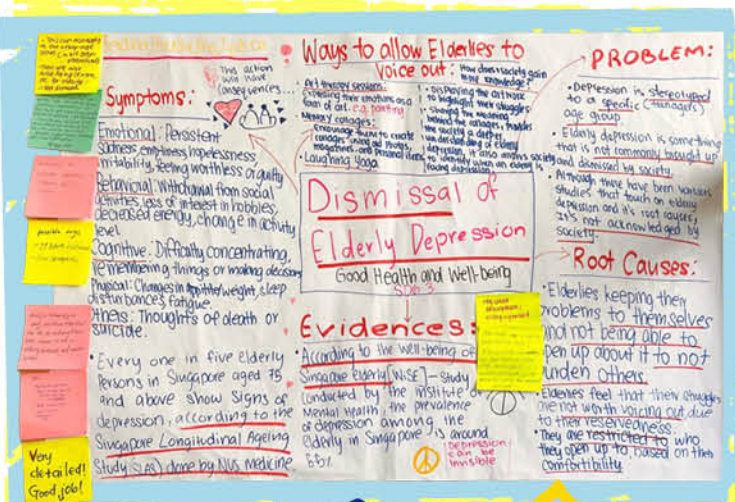 Symptoms:
This action
will have
consequences...
Emotional: Persistent
sadness, emptiness, hopelessness,
irritability, feeling worthless or guilty
Behavioral: Withdrawal from social
activities, loss of interest in hobbies,
decreased energy, change in activity
level
Cognitive: Difficulty concentrating,
remembering things or making decisions
Physical: Changes in appetite/weight, sleep
disturbances, fatigue.
Others: Thoughts of death or
suicide.
• Every one in five elderly
persons in Singapore aged 75
and above show signs of
depression, according to the
Singapore Longitudinal Ageing
Study (SLAS) done by NUS medicine
Very
detailed!
Good job!
Ways to allow Elderlies to
voice out:
• Art therapy sessions:
Expressing their emotions as a
form of art. e.g. painting
• Memory collages:
Encourage them to create
collages using old photos,
magazines, and personal items
• Laughing Yoga
How does society gain
more knowledge?
• Displaying the artwork
to highlight their struggles
• Sharing the meaning
behind the collages, enables
the society a deeper
understanding of elderly
depression, it also assists society
to identify when an elderly is
facing depression.
Dismissal of
Elderly Depression
Good Health and Well-being
SDG 3
Evidences:
• According to the Well-being of
Singapore Elderly (WiSE) - study
conducted by the institute of
Mental Health, the prevalence
of depression among the
elderly in Singapore is around
Depression
can be
invisible
PROBLEM:
• Depression is stereotyped
to a specific (teenagers)
age group.
• Elderly depression is something
that is not commonly brought up
and dismissed by society.
• Although there have been various
studies that touch on elderly
depression and it's root causes,
it's not acknowledged by
society.
Root Causes:
• Elderlies keeping their
problems to themselves
and not being able to
open up about it to not
burden others.
• Elderlies feel that their struggles
are not worth voicing out due
to their reservedness.
• They are restricted to who
they open up to, based on their
comfortibility.